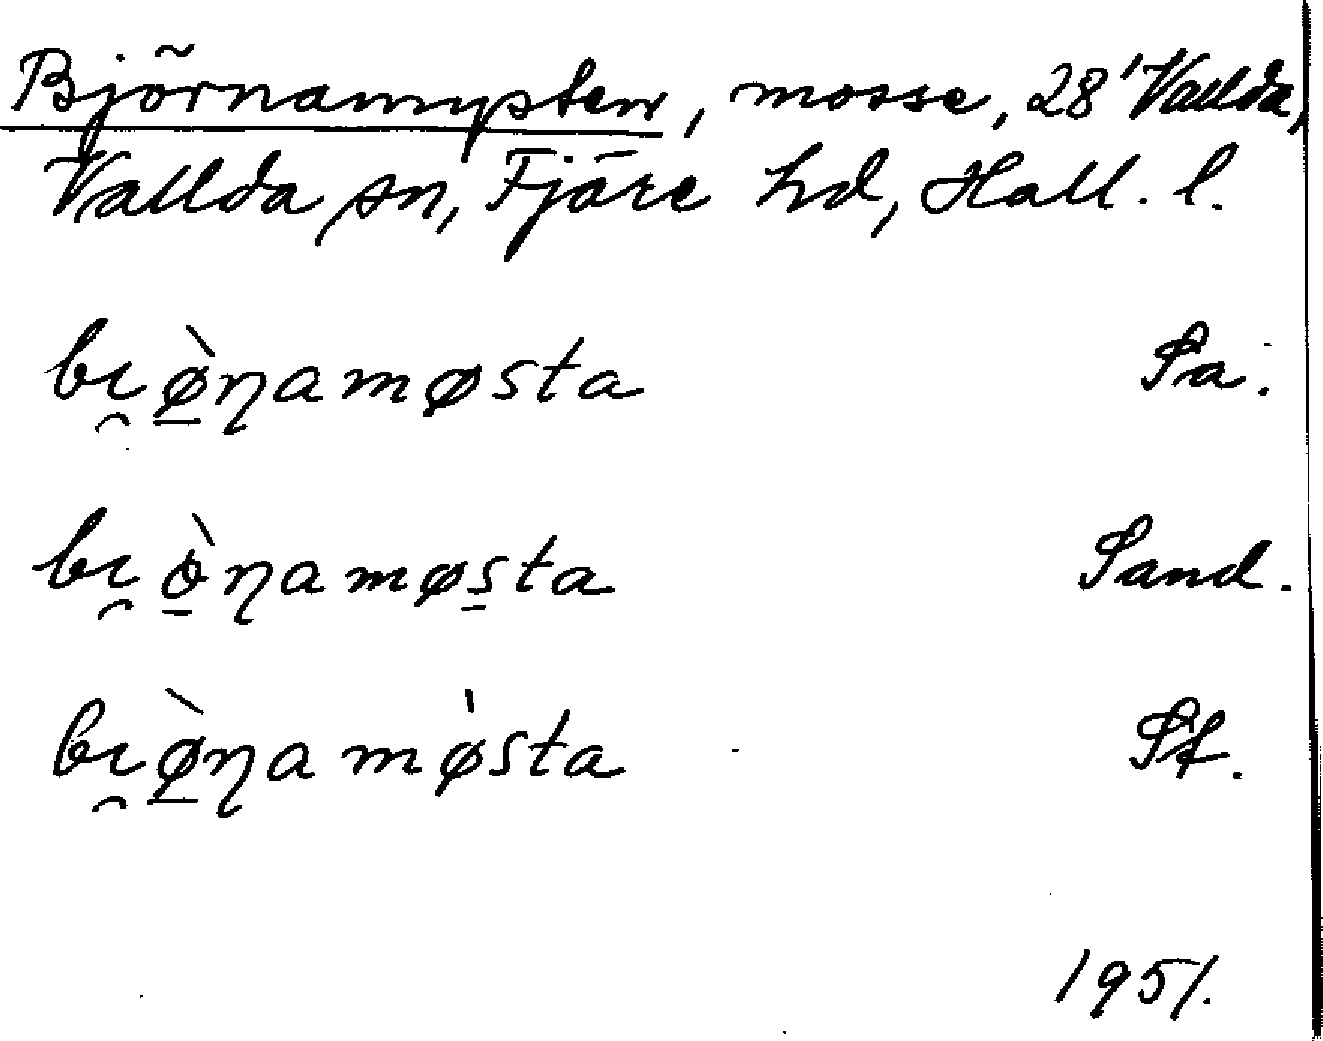 Björnamysten, mosse, 28' Vallda,
Vallda sn, Fjäre hd, Hall. l.
bɩ̯ø̠̀ɳamøsta Sa.
bɩ̯ò̠ɳamøs̠ta Sand.
bɩ̯ø̠̀ɳamø̍sta St.
1951.